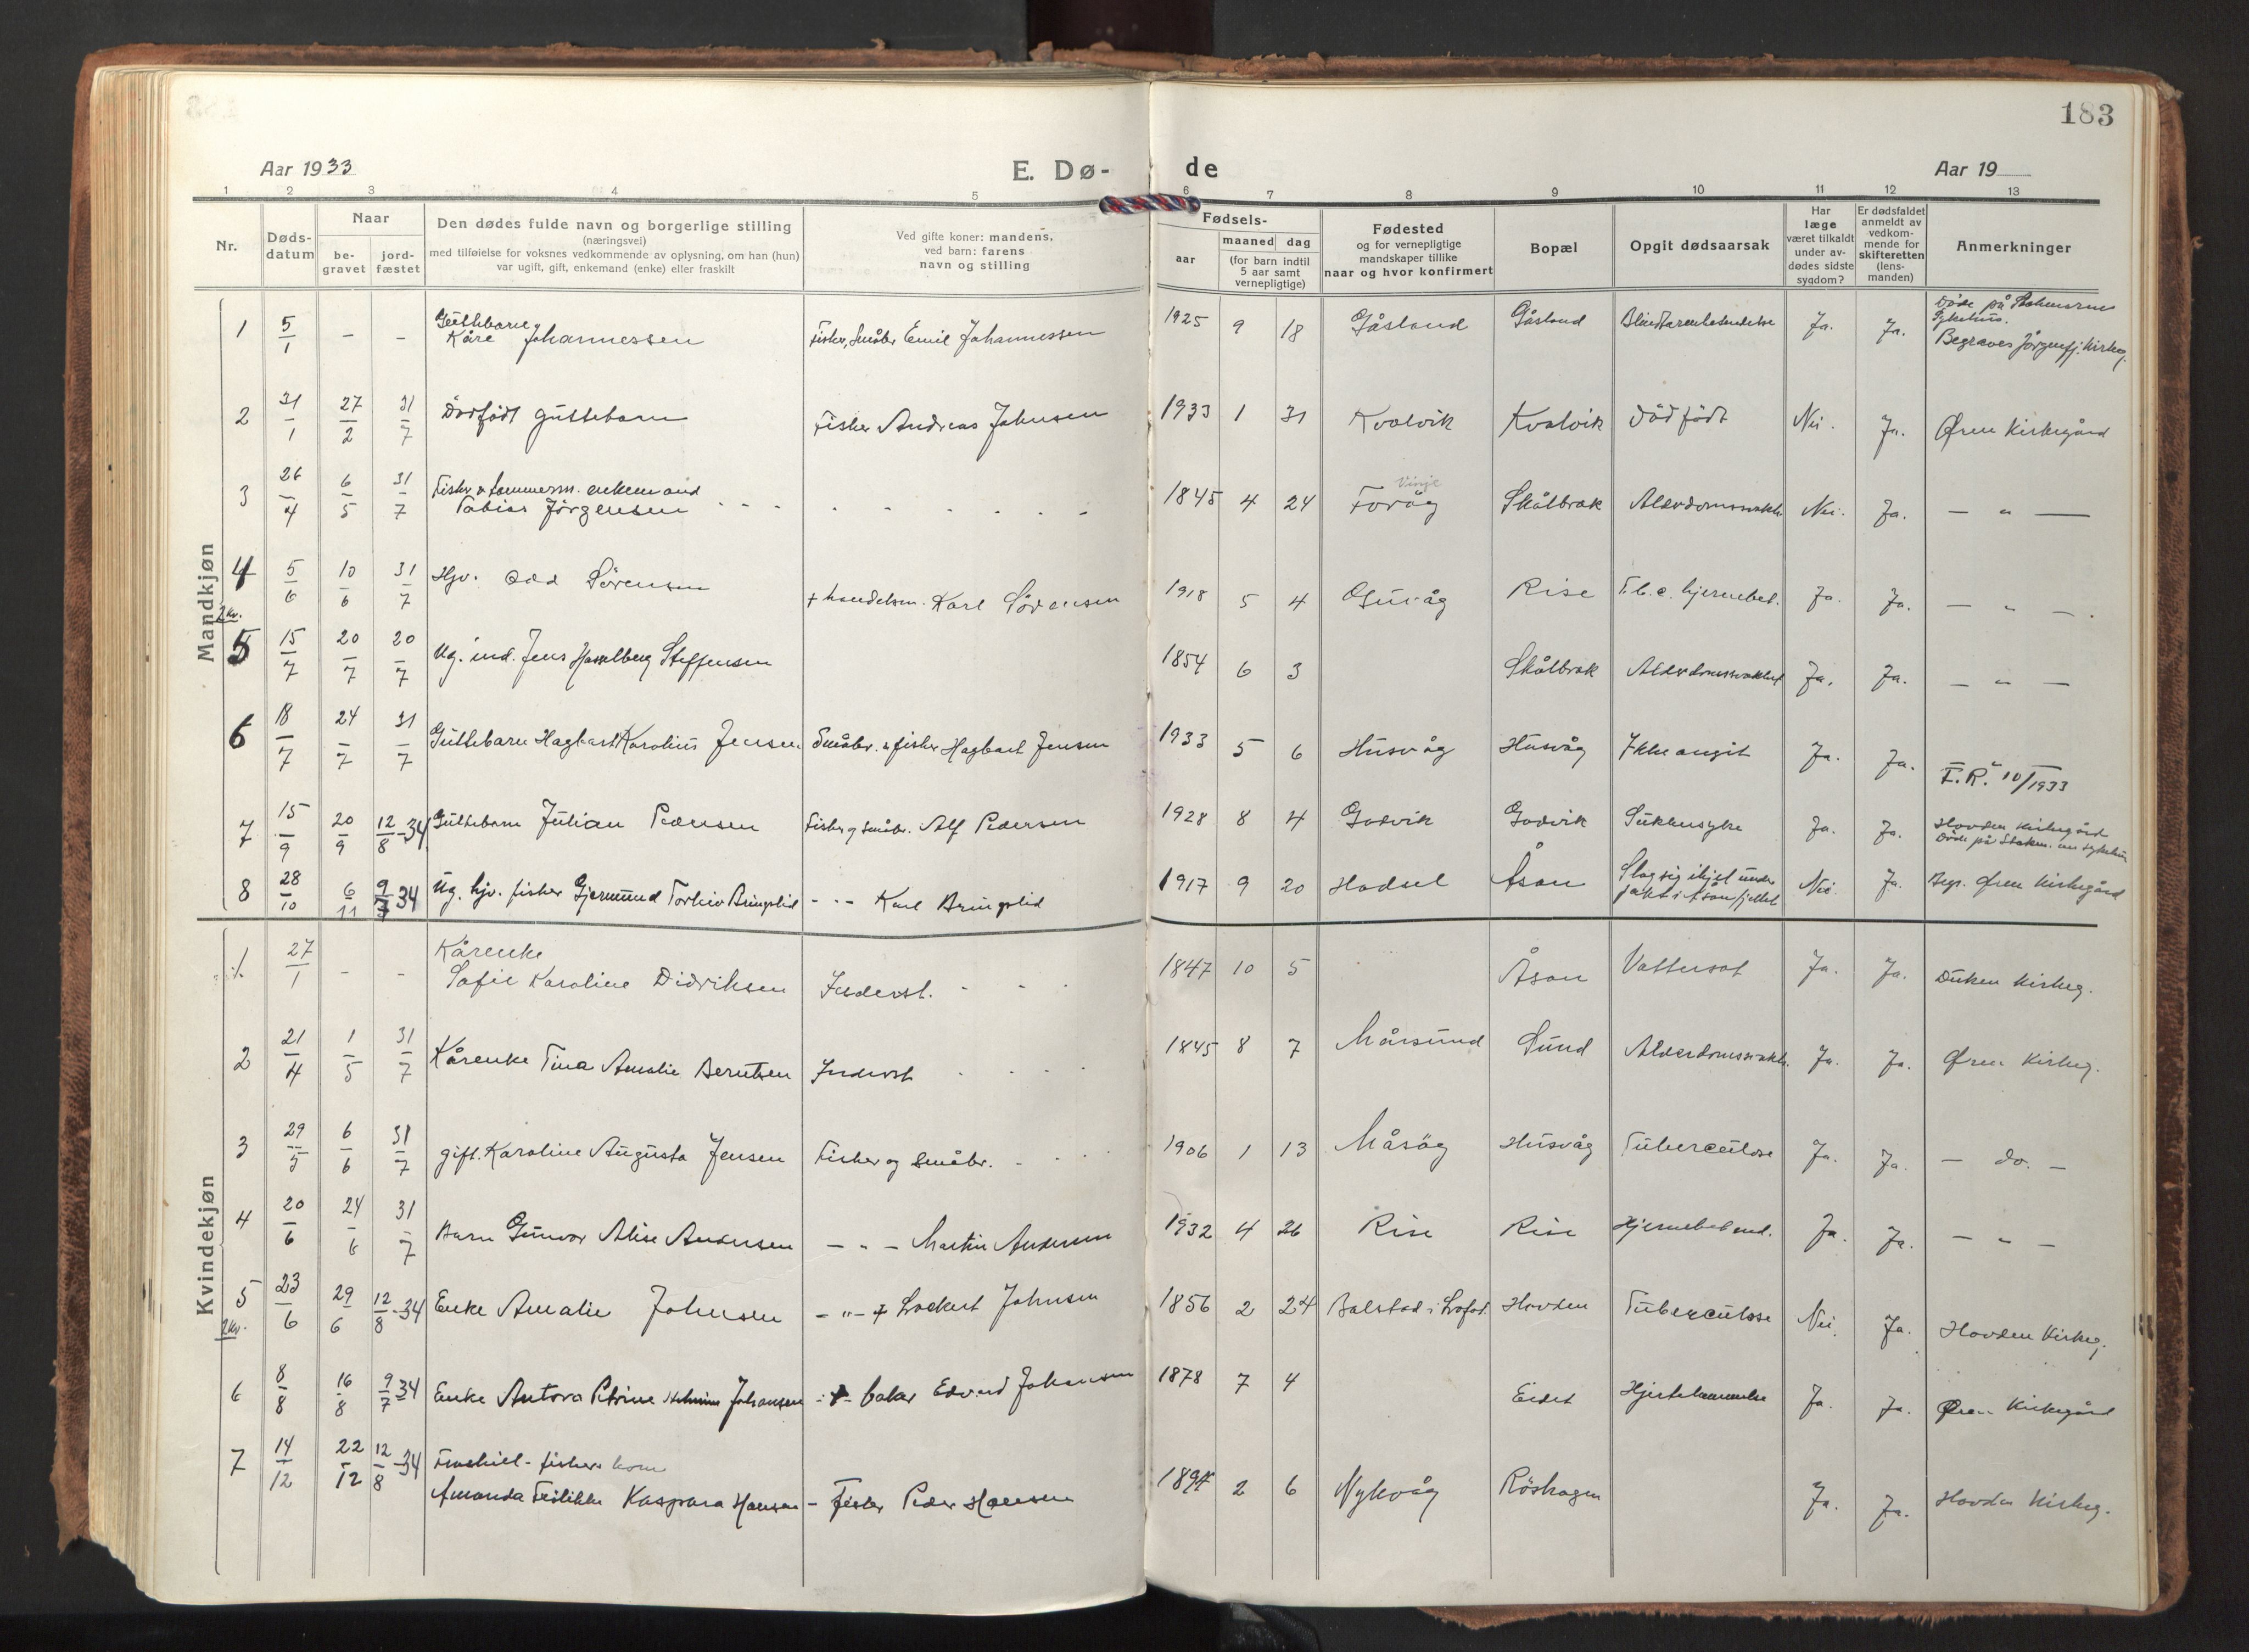 183
Aar 1933
E. Dø-
de
Aar 19
1 2 3 4 5 6 7 8 9 10 11 12 13
Nr.
Døds-
datum
Naar
be-
gravet
jord-
fæstet
Den dødes fulde navn og borgerlige stilling
(næringsvei)
med tilføielse for voksnes vedkommende av oplysning, om han (hun)
var ugift, gift, enkemand (enke) eller fraskilt
Ved gifte koner: mandens,
ved barn: farens
navn og stilling
Fødsels-
aar
maaned dag
(for barn indtil
5 aar samt
vernepligtige)
Fødested
og for vernepligtige
mandskaper tillike
naar og hvor konfirmert
Bopæl
Opgit dødsaarsak
Har
læge
været tilkaldt
under av-
dødes sidste
sygdom?
Er dødsfaldet
anmeldt av
vedkom-
mende for
skifteretten
(lens-
manden)
Anmerkninger
Mandkjøn
1 5/1 - - Guttebarn
Kåre Johannessen Fisker, Småbr Emil Johannessen 1925 9 18 Gåsland Gåsland Blindtarmbetendelse Ja. Ja. Døde på
Sykehus.
Begraves Jörgenfj. Kirkeg.
2 31/1 27/2 31/7 Dödfödt guttebarn Fisker Andreas Johnsen 1933 1 31 Kvalvik Kvalvik Dödfödt Nei. Ja. Øren Kirkegård
3 26/4 6/5 31/7 Fisker & tömmerm. enkemand
Tobias Jörgensen 1845 4 24 Vinje
Foråg Skålbrek Alderdomssvakh. Nei. Ja. — " —
4 5/6 10/6 31/7 Hjv. Odd Sörensen + handelsm. Karl Sörensen 1918 5 4 Guvåg Rise T.b.c. hjernebet. Ja. Ja. — " —
2 kv.
5 15/7 20/7 20/7 Ug. ind. Jens Hasselberg Steffensen 1854 6 3 Skålbrek Alderdomssvakhet Ja. Ja. — " —
6 18/7 24/7 31/7 Guttebarn Hagbart Karolius Jensen Småbr. & fisker Hagbart Jensen 1933 5 6 Husvåg Husvåg Ikke angit Ja. Ja. — " —
F.R. 10/1933
7 15/9 20/9 12/8-34 Guttebarn Julian Pedersen Fisker og småbr. Alf Pedersen 1928 8 4 Godvik Godvik Sukkersyke Ja. Ja. Hovden Kirkegård
Döde på Stokm. sykehus
8 28/10 6/11 9/7 34 Ug. hjv. fisker Gjermund Torleiv Bringslid - - - Karl Bringslid 1917 9 20 Hadsel Åsan Slog sig ihjel under
jakt i Åsanfjellet Nei. Ja. Begr. Øren Kirkegård
Kvindekjøn
1. 27/1 - - Kårenke
Sofie Karoline Didriksen Inderst. 1847 10 5 Åsan Vattersot Ja. Ja. Kirkeg.
2 21/4 1/5 31/7 Kårenke Tina Amalie Berntsen Inderst 1845 8 7 Mårsund Sund Alderdomssvakh. Ja. Ja. Øren Kirkeg.
3 29/5 6/6 31/7 gift. Karoline Augusta Jensen Fisker og Småbr. 1906 1 13 Måsög Husvåg Tuberculose Ja. Ja. — do. —
4 20/6 24/6 31/7 Barn Gunvor Alise Andersen — " — Martin Andersen 1932 4 26 Rise Rise Hjernebetend. Ja. Ja. — " —
5 23/6 29/6 12/8-34 Enke Amalie Johnsen — " — + Lockert Johnsen 1856 2 24 Balstad i Lofot. Hovden Tuberculose Nei. Ja. Hovden Kirkeg.
2 kv.
6 8/8 16/8 9/7 34 Enke Antora Petrine Johansen - + - baker Edvard Johansen 1878 7 4 Eidet Hjertelammelse Ja. Ja. Øren Kirkegård
7 14/12 22/12 12/8-34 Fraskilt - fishers kone
Amanda Kaspara Hansen - Fisker Peder Hansen 1894 2 6 Nykvåg Röshagen Ja. Ja. Hovden Kirkeg.